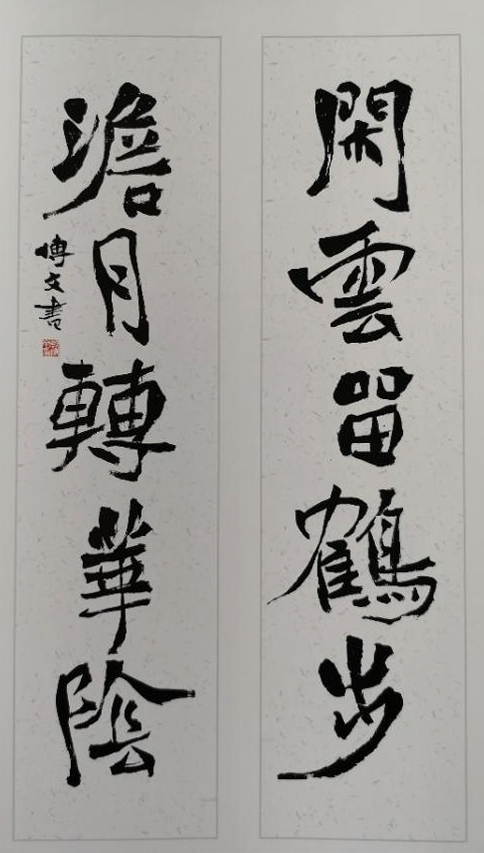 閑雲留鶴步
澹月轉華陰
博文書